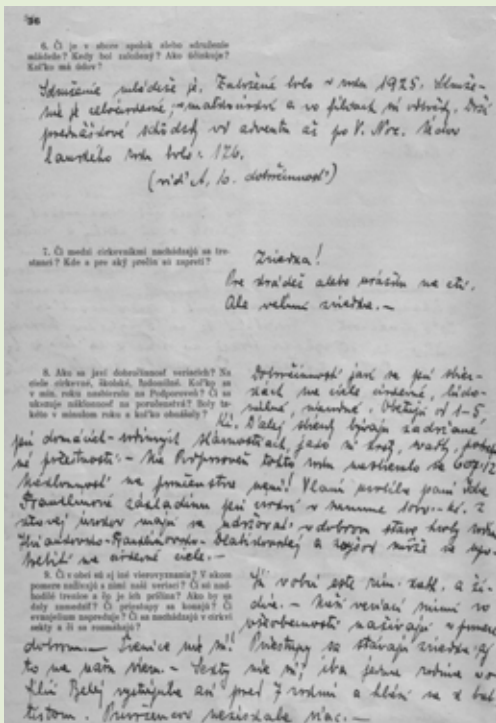 36
6. Či je v sbore spolok alebo združenie
mládeže? Kedy bol založený? Ako účinkuje?
Koľko má údov?
Združenie mládeže je. Založené bolo v roku 1925. Združe-
nie je celocirkevné, a vo filiách má odbočky. Drží
prednáškové schôdzky od adventu až po V. Noc. Údov
roku bolo: 126.
(viď A, 10. dobročinnosť)
7. Či medzi cirkevníkmi nachádzajú sa tre-
stanci? Kde a pre aký prečin sú zapretí?
Zriedka!
Pre krádež alebo urážku na cti.
Ale veľmi zriedka. —
8. Ako sa javí dobročinnosť veriacich? Na
ciele cirkevné, školské, ľudomilné. Koľko sa
v min. roku nasbieralo na Podporoveň? Či sa
ukazuje náklonnosť na poručenstvá? Boly ta-
kéto v minulom roku a koľko obnášaly?
Dobročinnosť javí sa pri sbier-
kach na ciele cirkevné, ľudo-
milné, národné. Obetujú od 1-5
Kč. Ďalej sbierky bývajú zadržané
pri domácich-rodinných slávnostiach, jako sú krsty, svadby,
— Na Podporoveň tohto roku nasbieralo sa
Náklonnosť na není! Vlani urobila pani
základinu pri cirkvi v sume Kč. Z
úrokov majú sa udržovať v dobrom stave hroby
a zvyšok môže sa upo-
trebiť na cirkevné ciele. —
9. Či v obci sú aj iné vierovyznania? V akom
pomere nažívajú s nimi naši veriaci? Či sú nad-
hodilé trenice a čo je ich príčina? Ako by sa
daly zamedziť? Či priestupy sa konajú? Či
evanjelium napreduje? Či sa nachádzajú v cirkvi
sekty a či sa rozmáhajú?
Sú v obci ešte rím. kath. a ži-
dia. — Naši veriaci s nimi vo
všeobecnosti nažívajú v pomere
dobrom. — Trenice nie sú! Priestupy sa stávajú zriedka aj
to na našu vieru. — Sekty nie sú, iba jedna rodina vo
filii Belej vystúpila asi pred 7 rokmi a hlási sa k bap-
tistom. Prívržencov nezískala viac. —